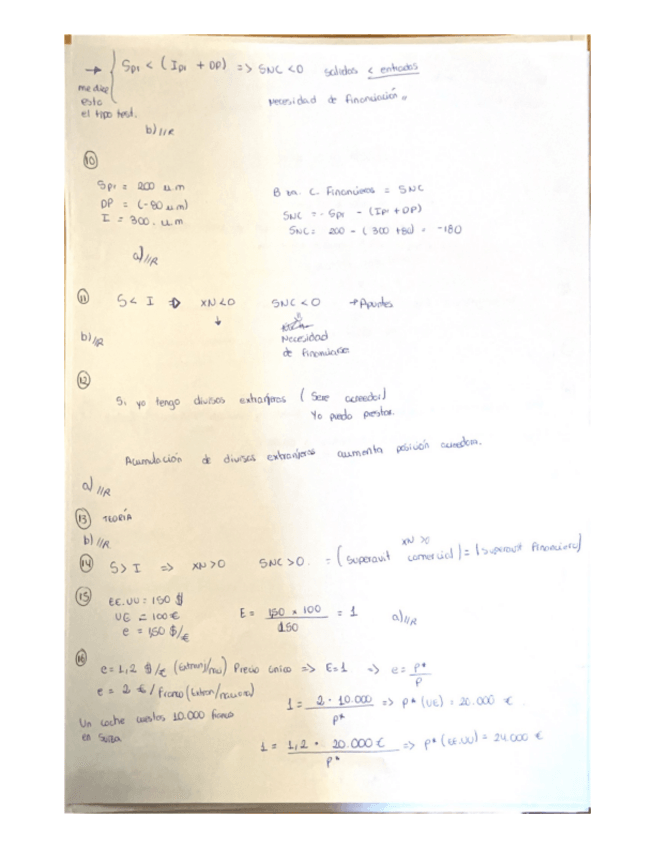 → Spr < (Ipr + DP) => SNC < 0 salidas < entradas
me dice
esto
el tipo test.
Necesidad de financiación,,
b)//R
10
Spr = 200 u.m
DP = (-80 u.m)
I = 300. u.m
B za. C. Financieros = SNC
SNC = - Spr - (Ipr + DP)
SNC = 200 - (300 + 80) = -180
a)//R
11 S < I => XN < 0 SNC < 0 → Apuntes
↓
Necesidad
de financiarse
b)//R
12
Si yo tengo divisas extranjeras (Seré acreedor)
Yo puedo prestar.
Acumulación de divisas extranjeras aumenta posición acreedora.
a)//R
13 TEORÍA
b)//R.
14 S > I => XN > 0 SNC > 0. = (Superavit comercial) = (Superavit Financiero)
XN > 0
15 EE.UU = 150 $
UE = 100 €
e = 1,50 $/€
E = 1,50 x 100 / 150 = 1 a)//R
16
e = 1,2 $/€ (Extranj/nac) Precio único => E = 1 => e = P*/P
e = 2 €/Franco (Extran/nacional)
1 = 2 · 10.000 / P* => P* (UE) = 20.000 €
Un coche cuesta 10.000 francos
en Suiza
1 = 1,2 · 20.000 € / P* => P* (EE.UU) = 24.000 €